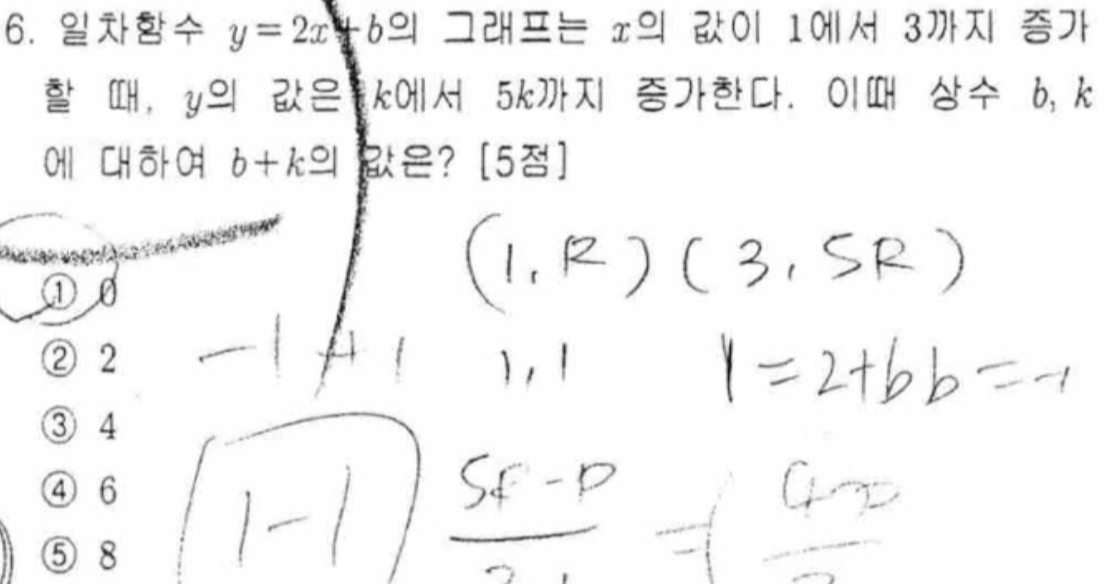 6. 일차함수 y=2x+b의 그래프는 x의 값이 1에서 3까지 증가
할 때, y의 값은 k에서 5k까지 증가한다. 이때 상수 b, k
에 대하여 b+k의 값은? [5점]
(1, k) (3, 5k)
① 0
② 2
-1+1 1,1 1=2+b b=-1
③ 4
④ 6
1-1
⑤ 8